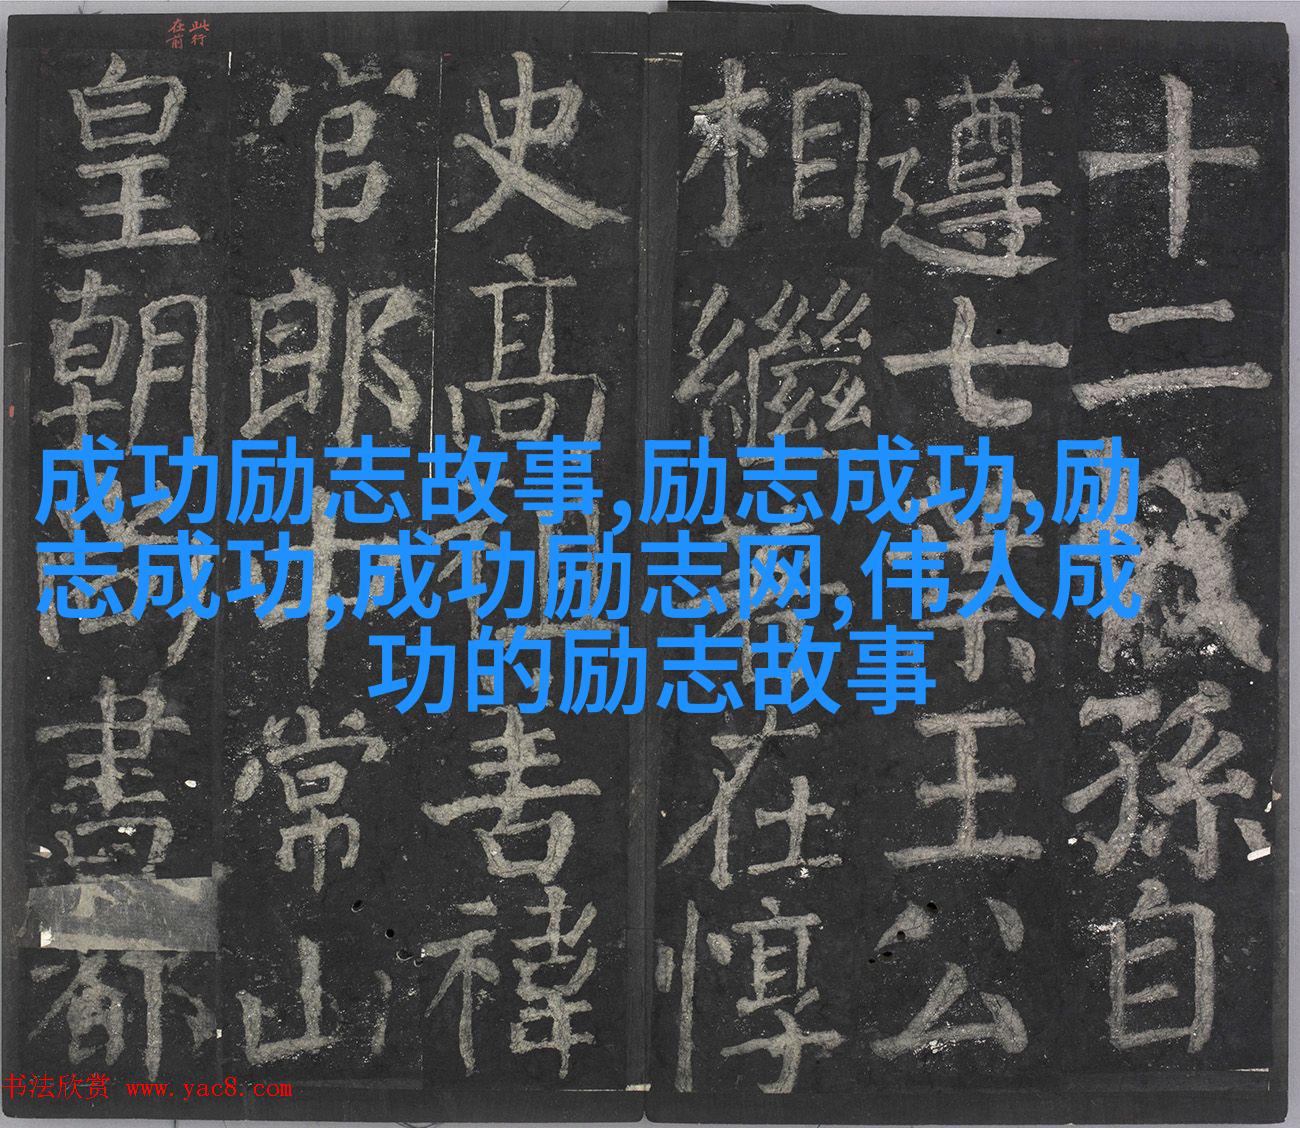 此行
在前
十二歲孫自
遵七葉王公
相繼在惇
史高祖禕
官郎中常山
皇朝尚書都
成功励志故事,励志成功,励
志成功,成功励志网,伟人成
功的励志故事
书法欣赏 www.yac8.com